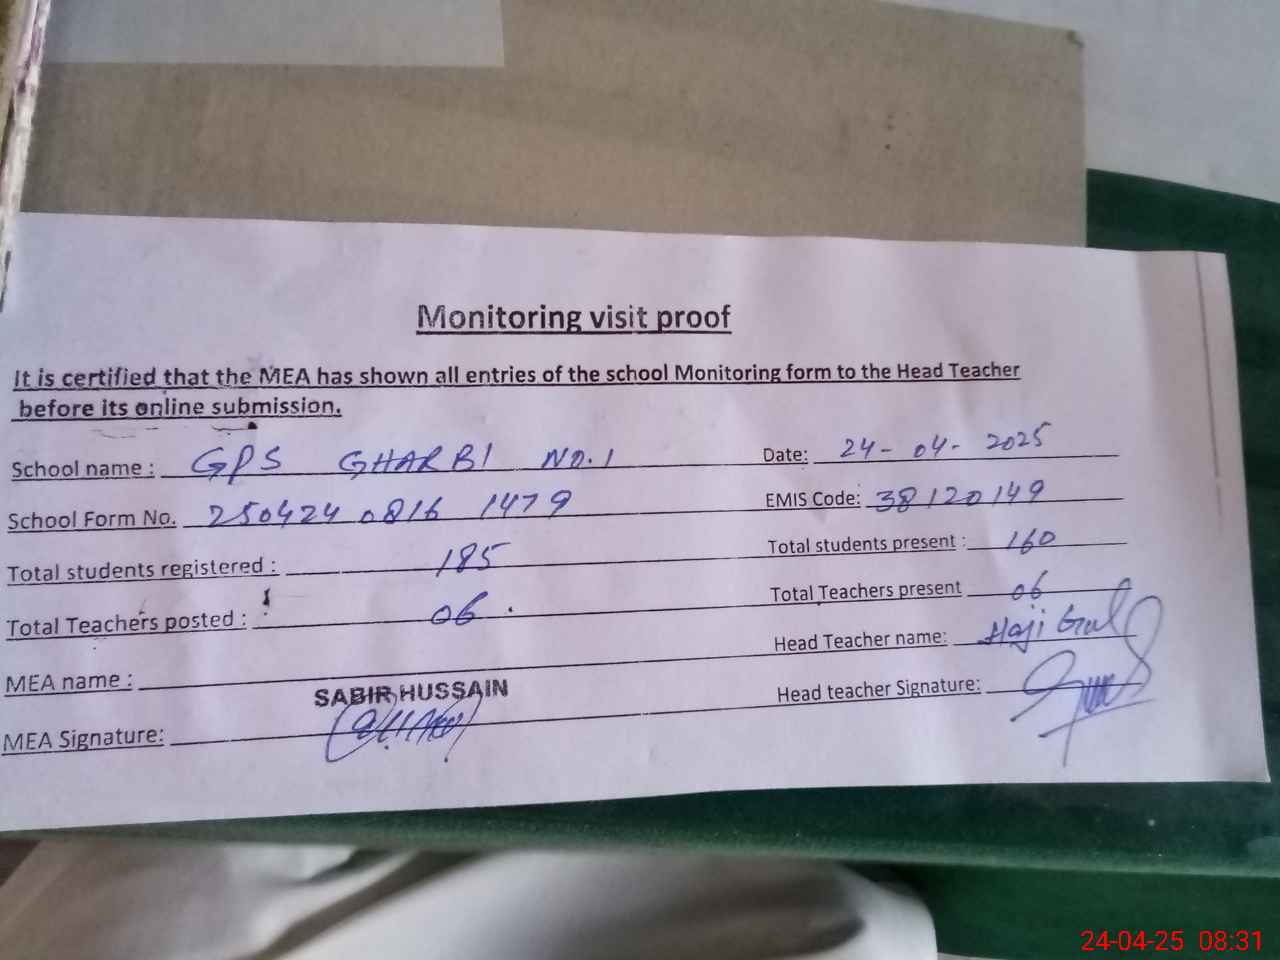 Monitoring visit proof
It is certified that the MEA has shown all entries of the school Monitoring form to the Head Teacher
before its online submission.
School name : GPS GHARBI NO.1 Date: 24-04-2025
School Form No. 250424 0816 1479 EMIS Code: 38120149
Total students registered : 185 Total students present : 160
Total Teachers posted : 06 Total Teachers present 06
MEA name : SABIR HUSSAIN Head Teacher name: Haji Gul
MEA Signature: Head teacher Signature:
24-04-25 08:31